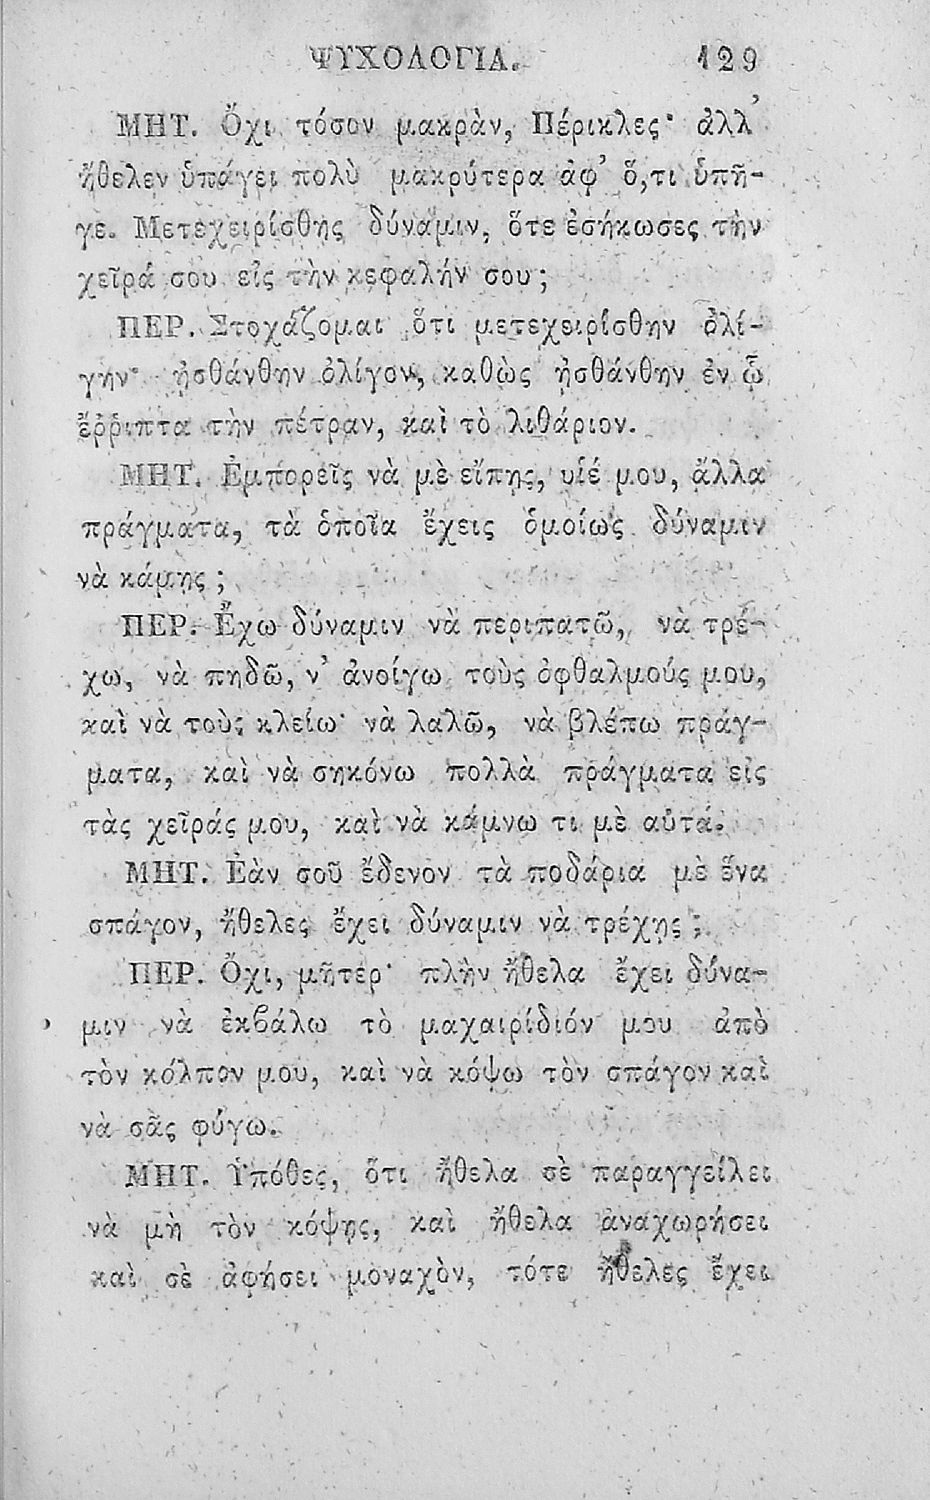 ΨΥΧΟΛΟΓΙΑ. 129
ΜΗΤ. Ὄχι τόσον μακρὰν, Πέρικλες· ἀλλ’
ἤθελεν ὑπάγει πολὺ μακρύτερα ἀφ’ ὅ,τι ὑπῆ-
γε. Μετεχειρίσθης δύναμιν, ὅτε ἐσήκωσες τὴν
χεῖρά σου εἰς τὴν κεφαλήν σου;
ΠΕΡ. Στοχάζομαι ὅτι μετεχειρίσθην ὀλί-
γην· ᾐσθάνθην ὀλίγον, καθὼς ᾐσθάνθην ἐν ᾧ
ἔῤῥιπτα τὴν πέτραν, καὶ τὸ λιθάριον.
ΜΗΤ. Ἐμπορεῖς νὰ μὲ εἴπῃς, υἱέ μου, ἄλλα
πράγματα, τὰ ὁποῖα ἔχεις ὁμοίως δύναμιν
νὰ κάμῃς;
ΠΕΡ. Ἔχω δύναμιν νὰ περιπατῶ, νὰ τρέ-
χω, νὰ πηδῶ, ν’ ἀνοίγω τοὺς ὀφθαλμούς μου,
καὶ νὰ τοὺς κλείω· νὰ λαλῶ, νὰ βλέπω πράγ-
ματα, καὶ νὰ σηκόνω πολλὰ πράγματα εἰς
τὰς χεῖράς μου, καὶ νὰ κάμνω τι μὲ αὐτά.
ΜΗΤ. Ἐὰν σοῦ ἔδενον τὰ ποδάρια μὲ ἕνα
σπάγον, ἤθελες ἔχει δύναμιν νὰ τρέχῃς;
ΠΕΡ. Ὄχι, μῆτερ· πλὴν ἤθελα ἔχει δύνα-
μιν νὰ ἐκβάλω τὸ μαχαιρίδιόν μου ἀπὸ
τὸν κόλπον μου, καὶ νὰ κόψω τὸν σπάγον καὶ
νὰ σᾶς φύγω.
ΜΗΤ. Ὑπόθες, ὅτι ἤθελα σὲ παραγγείλει
νὰ μὴ τὸν κόψῃς, καὶ ἤθελα ἀναχωρήσει
καὶ σὲ ἀφήσει μοναχὸν, τότε ἤθελες ἔχει